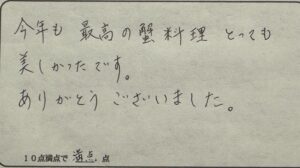 今年も 最高の蟹料理 とっても
美しかったです。
ありがとう ございました。
10点満点で 満点 点